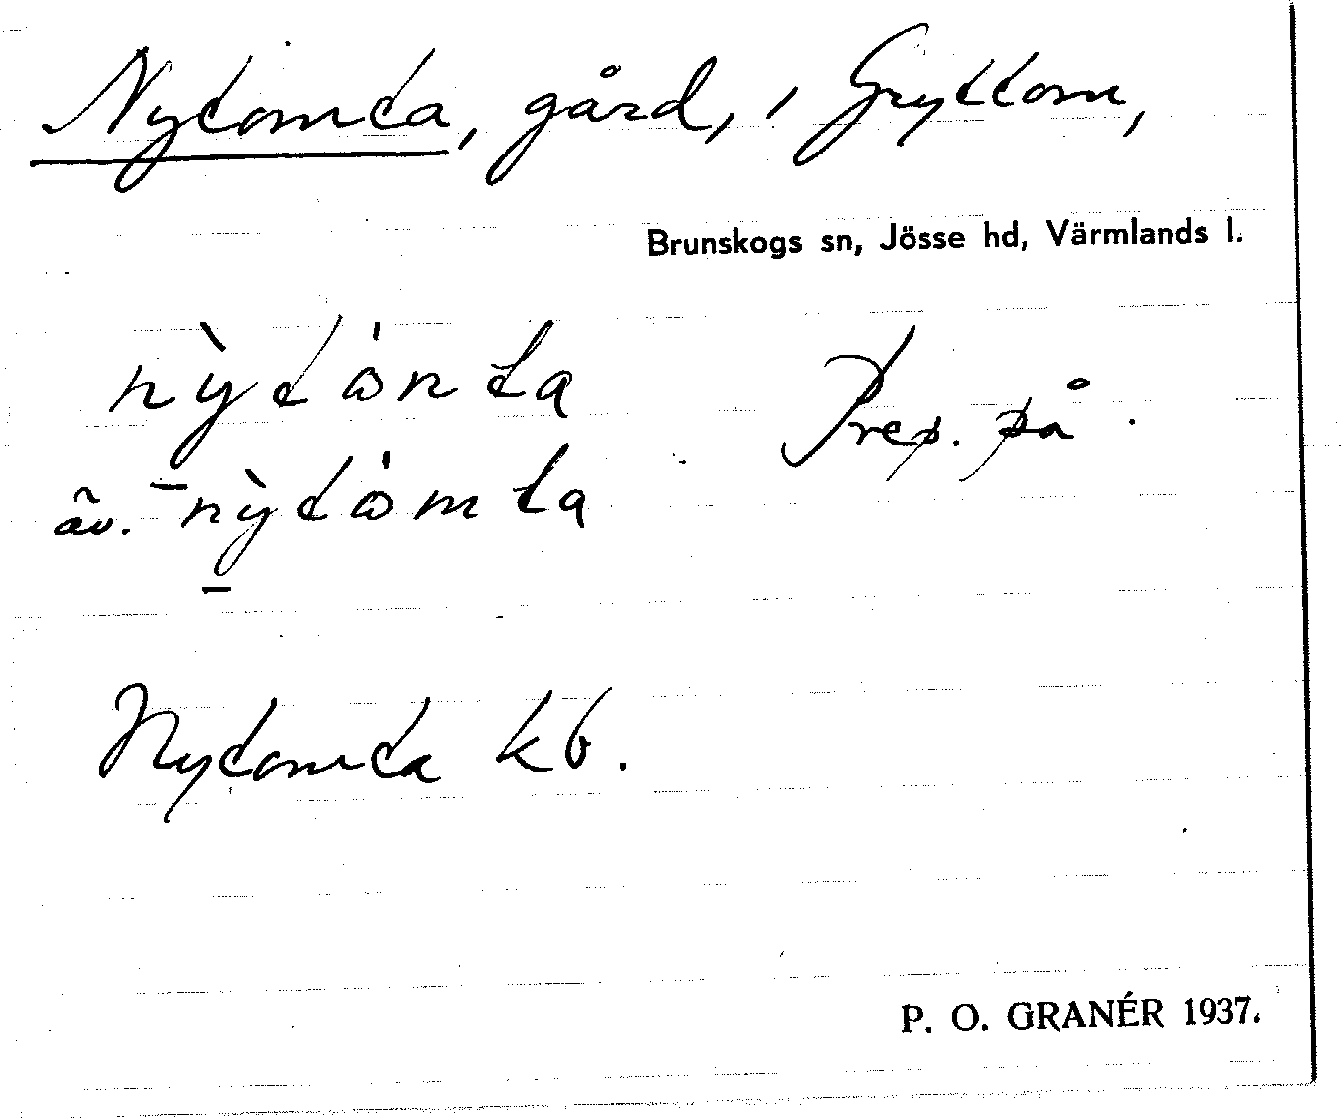 Nytomta, gård, i Gryttom,
Brunskogs sn, Jösse hd, Värmlands l.
nỳtónta
Prep. på.
äv. nỳtómta
Nytomta kb.
P. O. GRANÉR 1937.